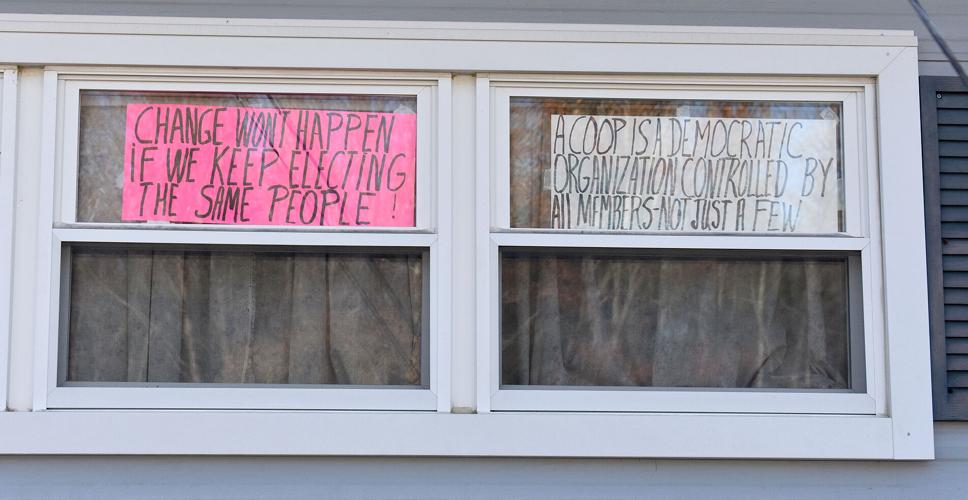 CHANGE WON'T HAPPEN
IF WE KEEP ELECTING
THE SAME PEOPLE!
A COOP IS A DEMOCRATIC
ORGANIZATION CONTROLLED BY
All MEMBERS-NOT JUST A FEW